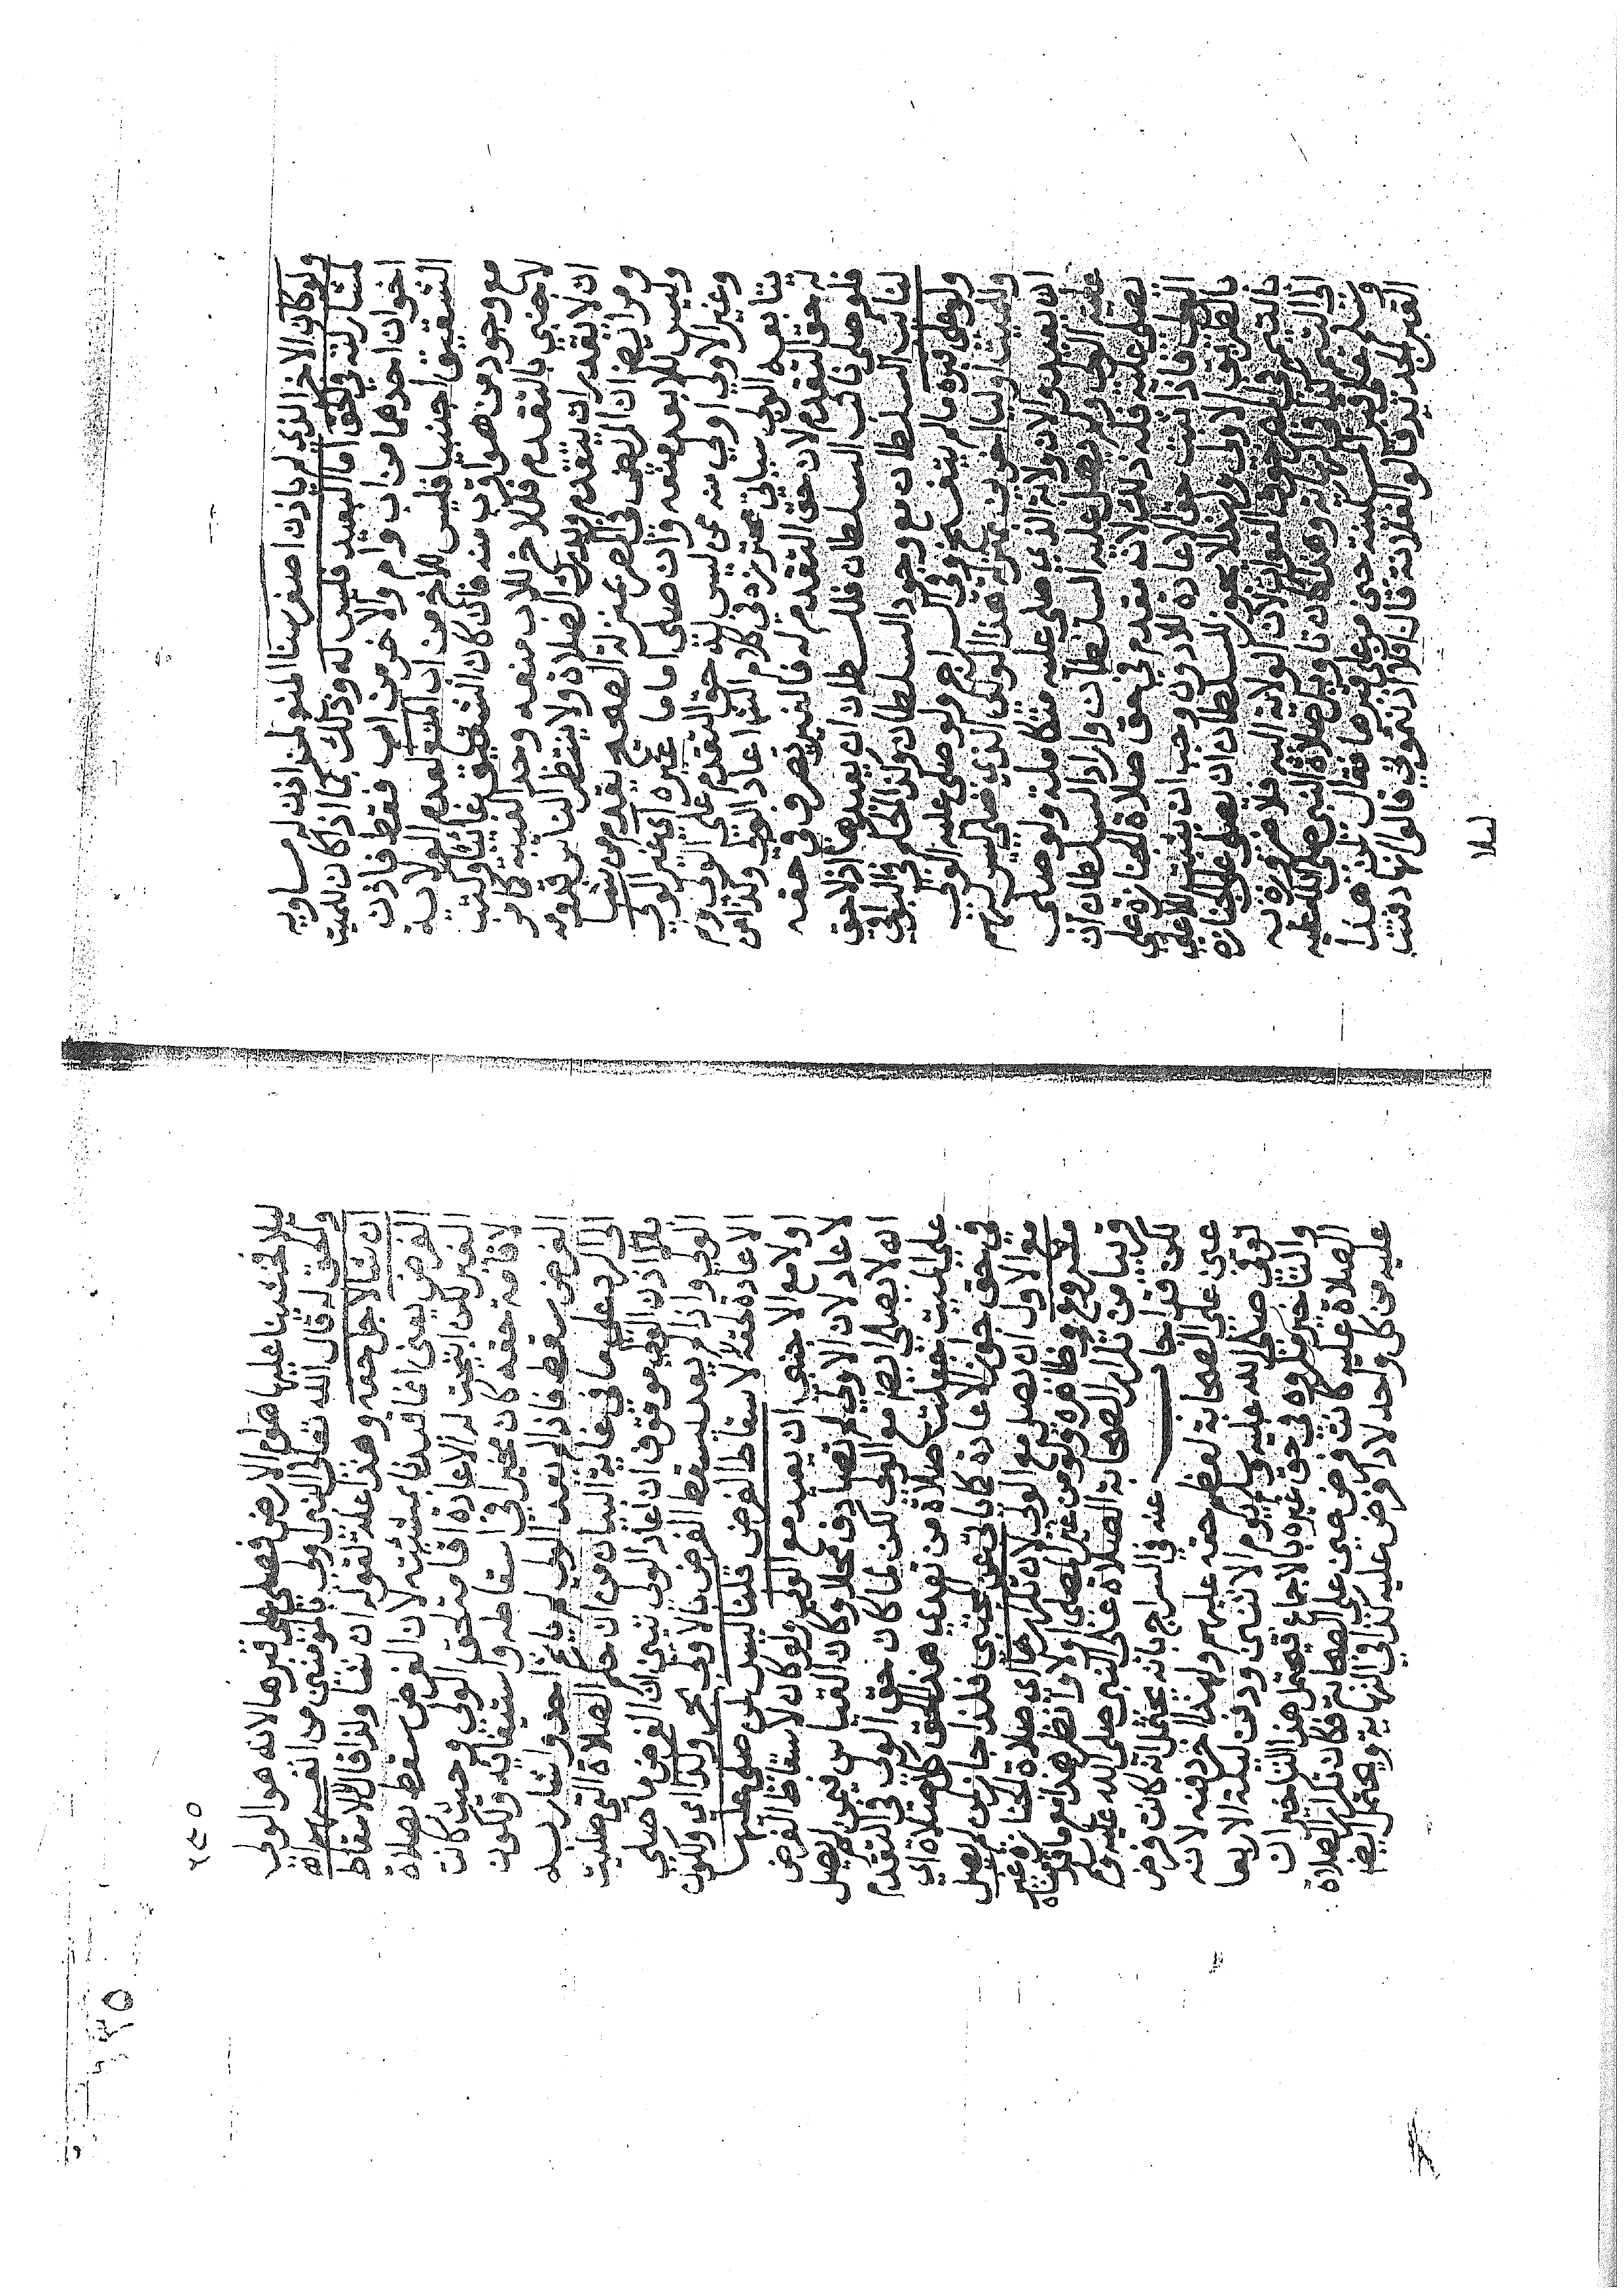 ولو كان الاخ الذي لم ياذن اصغر سنا المنع لمن اذن له مساويه
مشاركته في الحق اما البعيد فليس له وذلك كما اذا كان للميت
اخوان احدهما من اب وام والاخر من اب فقط فاذن
الشقيق اجنبيا فليس للاخ من اب المنع لعدم الولاية
مع وجود من هو اقرب منه فان كان الشقيق غائبا وكتب
لاجنبي بالتقدم فللاخ للاب منعه وحد الغيبة
ان لا يقدر ان يتقدم ويدرك الصلاة ولا ينتظر الناس قدومه
ومر ايضا ان المريض في المصر بمنزلة الصحيح يقدم من شا
وليس للابعد منعه وان صلى اماما غيره اي غير الولي
وغير الاولى اولى منه ممن ليس له حق التقدم على الولي ولم
يتابعه الولي سياتي محترزه في كلام الشا اعاد الولي وكذا من
له حق التقدم لان حق التقدم له فالغير تصرف في حقه
فلو صلى نائب السلطان فللسلطان ان يعيدها اذ لا حق
لنائب السلطان مع وجود السلطان وكذا الحكم في الباقي
ولو على قبره ما لم يتفسخ وفي السراج ولو صلى عليه الولي
وللميت اوليا اخرون بمنزلة هذا الولي الذي صلى ليس لهم
ان يعيدوا لان ولاية الذي صلى عليه متكاملة ولو صلى
عليه الولي ولم يصل عليه السلطان واراد السلطان ان
يصلي عليه فله ذلك لانه مقدم في حق صلاة الجنازة على
الولي فاذا ثبت حق الاعادة للادون وجب ان تثبت للاعلى
بالطريق الاولى ولهذا لا يجوز للسلطان ان يصلي على الجنازة
بالتيمم في المصر خوف الفوات لان الولاية اليه فلا ضرورة به
الى التيمم كذا في النهاية وهكذا كان تاويل صلاة النبي صلى الله عليه
وسلم على قبر المسكينة حين مر على قبرها فقال لمن هذا
القبر الجديد فقالوا لفلانة قال هلا اذنتموني قالوا انها دفنت
ليلا
٢٤٥
ليلا فخشينا عليها هوام الارض فصلى على قبرها لانه هو الولي
والحق له قال الله تعالى النبي اولى بالمؤمنين من انفسهم اه
ان شا لاجل حقه وهذا علة لقوله ان شا ولذا قال لا لاسقاط
الفرض يعني انما قيدنا بمشيئته لان الفرض سقط بصلاة
الغير لكن ابيحت له الاعادة اقامة لحق الولي وحيث كانت
لاقامة حقه كان مخيرا في اسقاطه واستيفائه ولكون
الفرض سقط فاذا لم يعد الولي لم ياثم احد واشار به
الى الرد على ما في غاية البيان من ان حكم الصلاة التي صليت
بلا اذن الولي موقوف ان اعاد الولي تبين ان الفرض ما صلى
الولي واذا لم يعد سقط الفرض بالاولى بحر ولذا اي ولكون
الاعادة لحقه لا لاسقاط الفرض قلنا ليس لمن صلى عليها
اولا مع الاجنبي ان يعيد مع الولي ولو كان لاسقاط الفرض
لاعاد لان الاولى لم تصادف محلا وكان القياس فيمن لم يصل
انه لا يصلي ايضا مع الولي لكن لما كان حق الولي في التقدم
على الميت جعلت صلاة من تعدى هذا الحق كلا صلاة اي
في حق جواز الاعادة كما ياتي عن المجتبى فلذا جاز لمن لم يصل
مع الاول ان يصلي مع الولي لان تكرارها اي صلاة الجنازة غير
مشروع وظاهره ولو من غير المصلي اولا وانظر هذا مع ما قدمناه
قريبا من تكرار الصحابة الصلاة على النبي صلى الله عليه وسلم
لكن قد اجاب عنه في السراج بانه يحتمل انه كانت فرض
عين على الصحابة لعظم حقه عليهم ولهذا اخر دفنه لانه
توفي صلى الله عليه وسلم يوم الاثنين ودفن ليلة الاربعا
والتاخير مكروه في حق غيره بالاجماع فيحتمل هذا التاخير ان
الصلاة عليه كانت فرض عين على الصحابة فكان تكرار الصلاة
عليه من كل واحد لادا فرض عليه كذا في النهاية ويحتمل ايضا